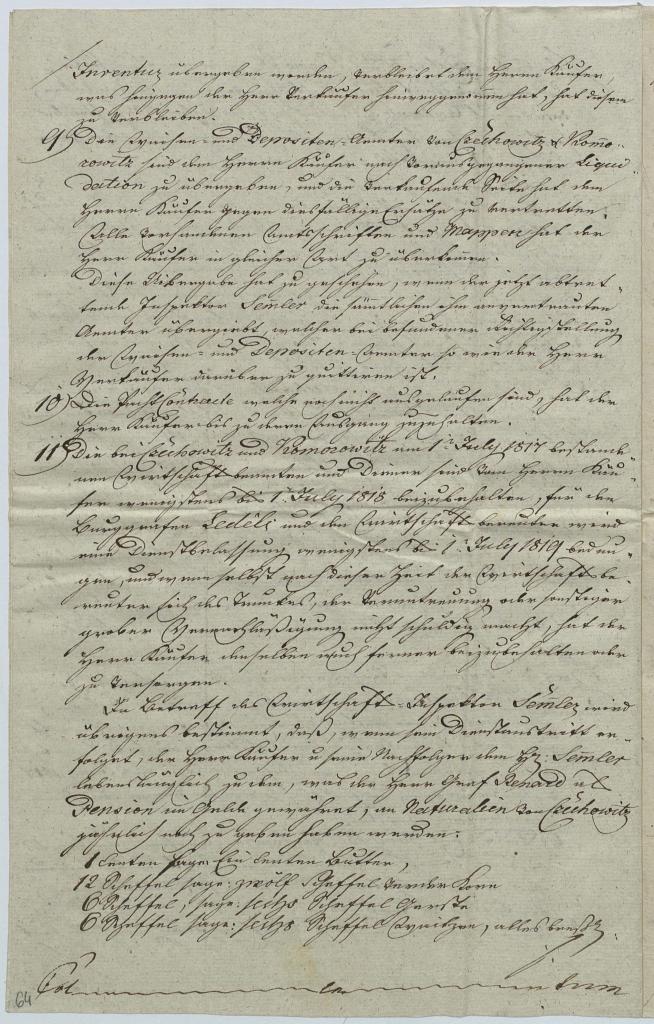 Inventur übergeben worden, verbleibet dem Herrn Käufer,
was hingegen der Herr Verkäufer hinweggenommen hat, hat diesem
zu verbleiben.
9) Die Waisen- und Depositen-Aemter von Czechowitz & Komo-
rowitz sind dem Herrn Käufer nach vorausgegangener Liqui-
dation zu übergeben, und die verkaufende Seite hat dem
Herrn Käufer gegen diesfällige Ersätze zu vertretten.
Alle vorhandenen Amtsschriften und Mappen hat der
Herr Käufer in gleicher Art zu überkommen.
Diese Uibergabe hat zu geschehen, wenn der jetzt abtret-
tende Inspektor Semler die sämtlichen ihm anvertrauten
Aemter übergiebt, welcher bei befundener Richtigstellung
der Waisen- und Depositen-Aemter so wie der Herr
Verkäufer darüber zu quittiren ist.
10) Die Pachtkontrakte welche noch nicht ausgelaufen sind, hat der
Herr Käufer bis zu deren Ausgang zuzuhalten.
11) Die bei Czechowitz und Komorowitz am 1t July 1817 bestande-
nen Wirtschaftsbeamten und Diener sind vom Herrn Käu-
fer wenigstens bis 1t July 1818 beizubehalten, für den
Burggrafen Ledeli und den Wirtschaftsbereuter wird
eine Dienstbelassung wenigstens bis 1t July 1819 bedun-
gen, und wenn selbst nach dieser Zeit der Wirtschaftsbe-
reuter sich des Trunkes, der Veruntreuung oder sonstiger
grober Vernachläßigung nicht schuldig macht, hat der
Herr Käufer denselben auch ferner beizubehalten oder
zu versorgen.
In Betreff des Wirtschafts-Inspektor Semler wird
übrigens bestimmt, daß, wenn sein Dienstaustritt er-
folget, der Herr Käufer u seine Nachfolger dem H: Semler
lebenslänglich zu dem, was der Herr Graf Renard als
Pension in Gelde gewähret, an Naturalien von Czechowitz
jährlich noch zu geben haben werden:
1 Centen sage: Ein Centen Butter,
12 Scheffel sage: zwölf Scheffel Korn
6 Scheffel, sage: sechs Scheffel Gerste
6 Scheffel sage: sechs Scheffel Waitzen, alles
64